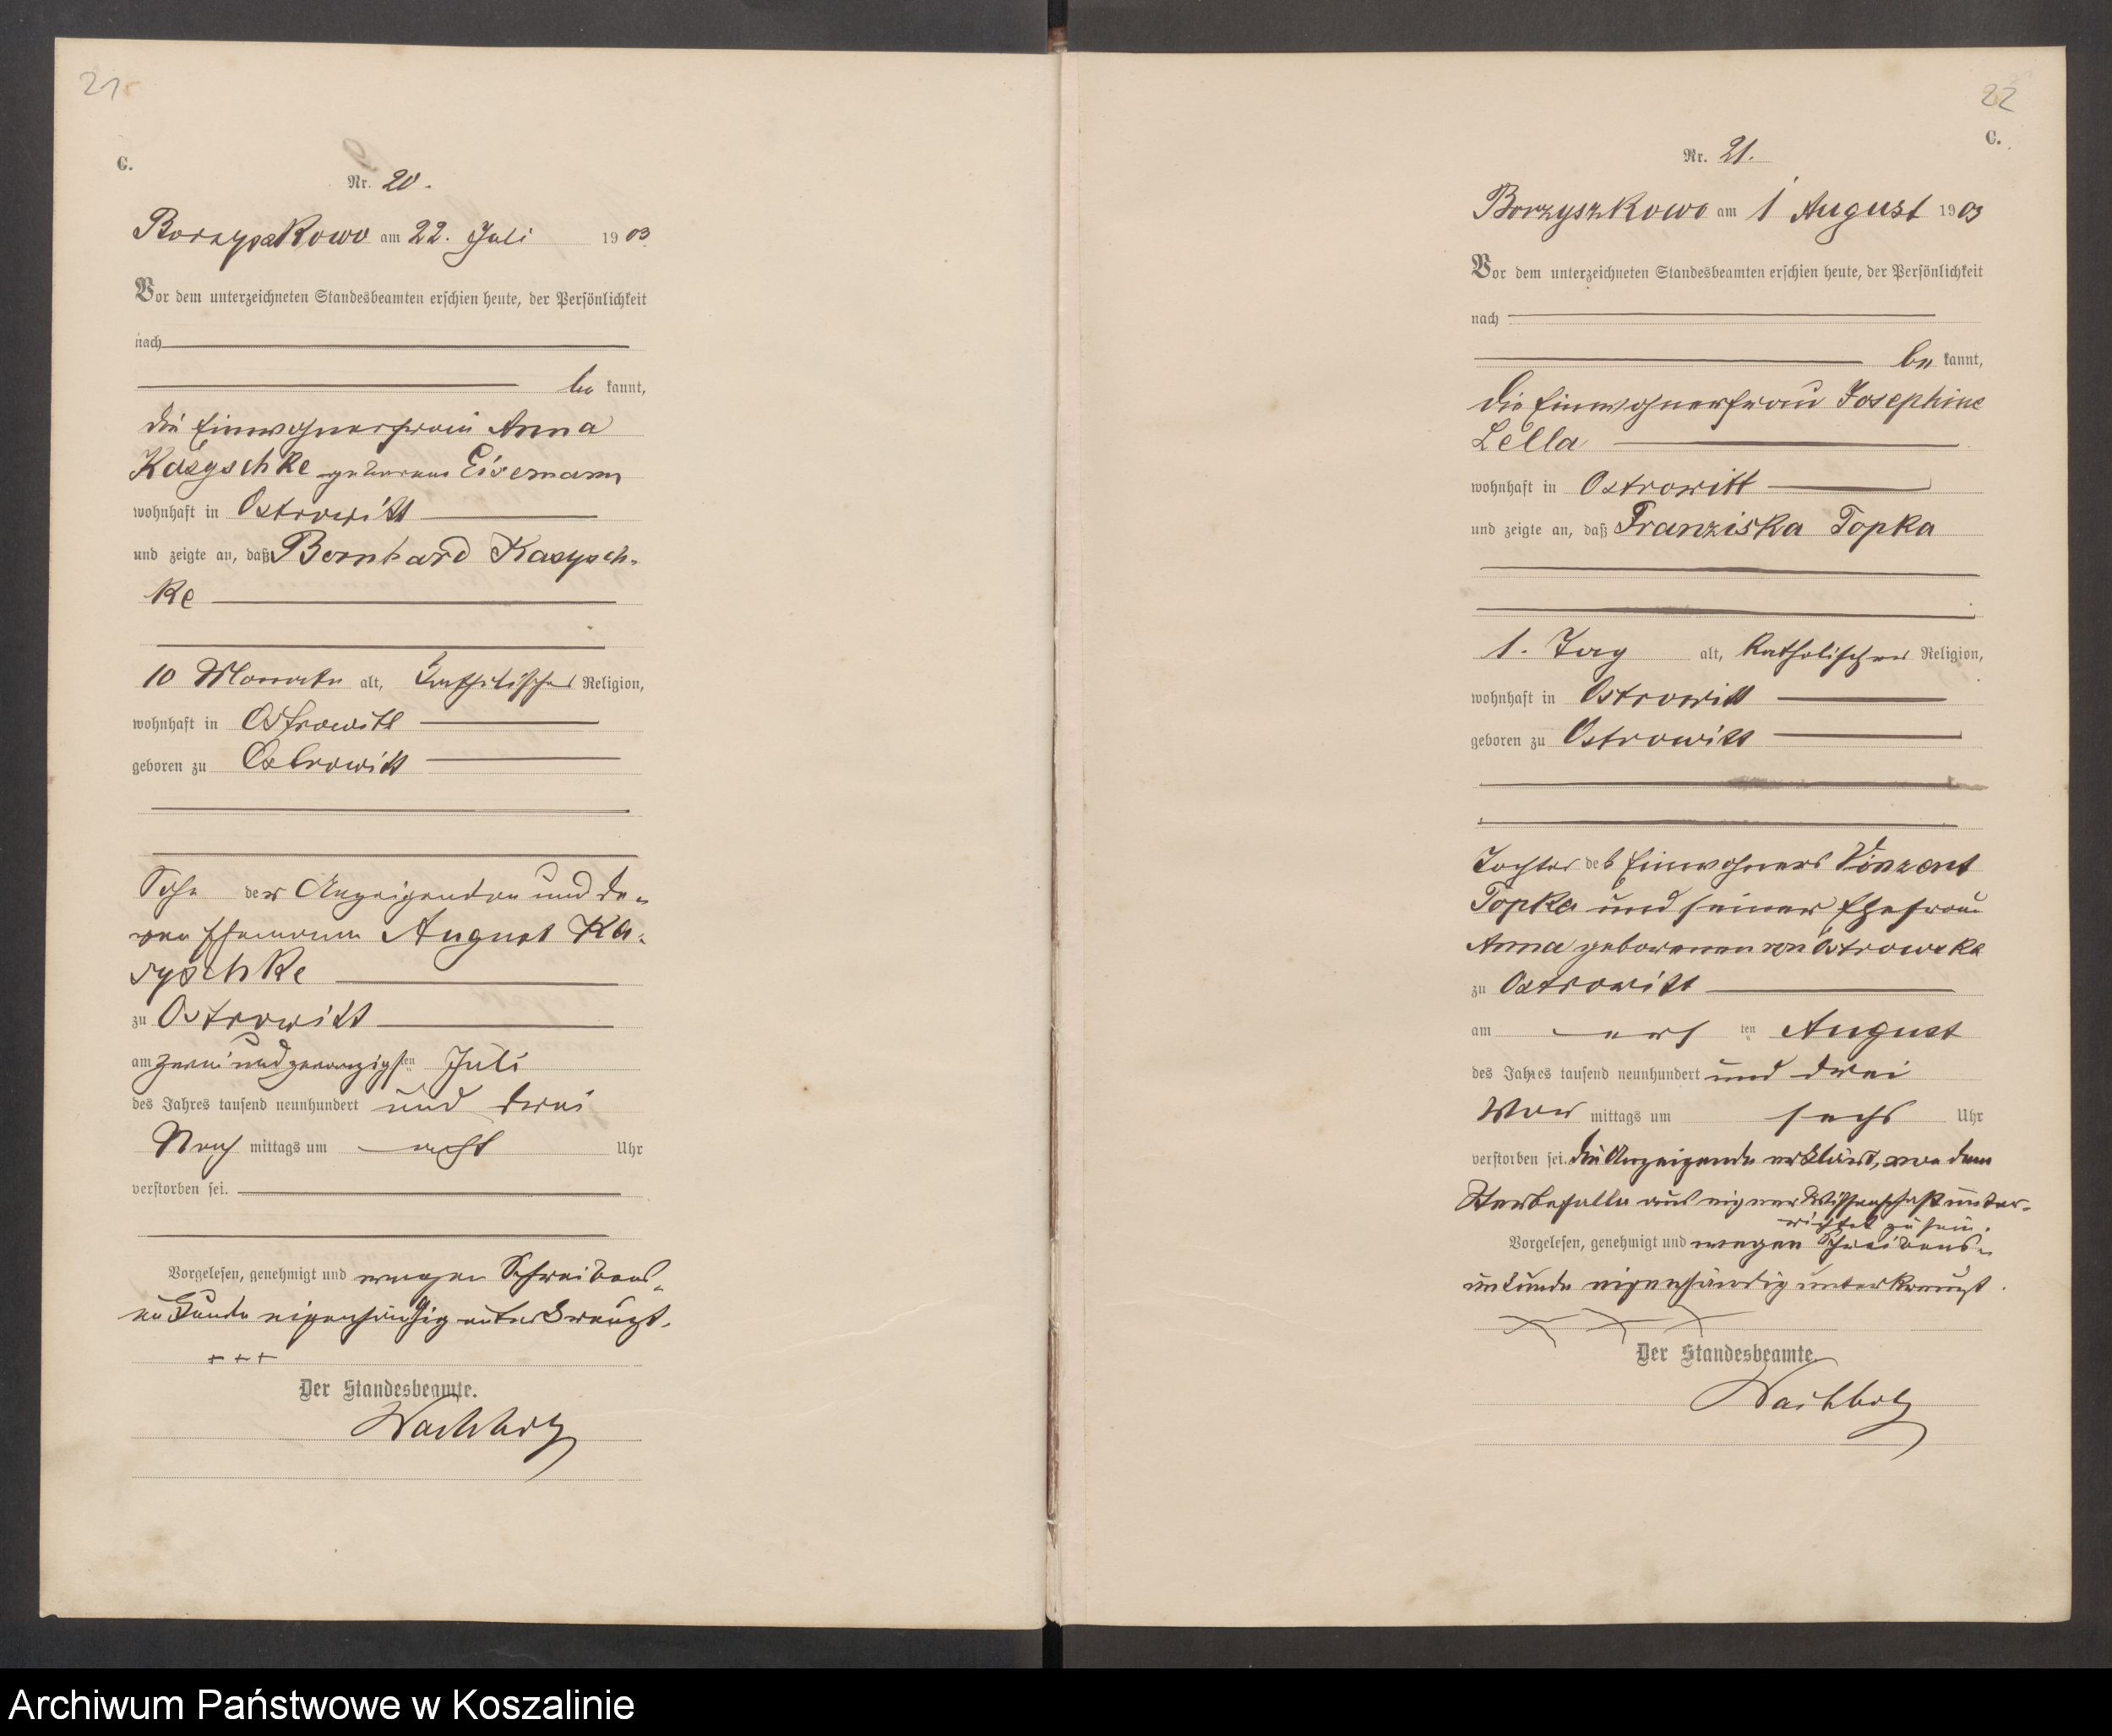 21
C.
Nr. 20.
Borzyszkowo am 22. Juli 1903
Vor dem unterzeichneten Standesbeamten erschien heute, der Persönlichkeit
nach
be kannt,
die Einwohnerfrau Anna
Kasyschke geborene Eisemann
wohnhaft in Ostrowitt
und zeigte an, daß Bernhard Kasysch-
ke
10 Monate alt, katholischer Religion,
wohnhaft in Ostrowitt
geboren zu Ostrowitt
Sohn der Anzeigenden und de-
ren Ehemann August Ka-
syschke
zu Ostrowitt
am zweiundzwanzigsten Juli
des Jahres tausend neunhundert und drei
Nach mittags um acht Uhr
verstorben sei.
Vorgelesen, genehmigt und wegen Schreibens-
unkunde eigenhändig unterkreuzt.
+++
Der Standesbeamte.
22
C.
Nr. 21.
Borzyszkowo am 1 August 1903
Vor dem unterzeichneten Standesbeamten erschien heute, der Persönlichkeit
nach
be kannt,
die Einwohnerfrau Josephine
Lella
wohnhaft in Ostrowitt
und zeigte an, daß Franziska Topka
1. Tag alt, katholischer Religion,
wohnhaft in Ostrowitt
geboren zu Ostrowitt
Tochter des Einwohners Vinzent
Topka und seiner Ehefrau
Anna geborenen von Ostrowska
zu Ostrowitt
am ersten August
des Jahres tausend neunhundert und drei
Vor mittags um sechs Uhr
verstorben sei. Die Anzeigende erklärt, von dem
Sterbefalle aus eigner Wissenschaft unter-
richtet zu sein.
Vorgelesen, genehmigt und wegen Schreibens-
unkunde eigenhändig unterkreuzt.
XXX
Der Standesbeamte.
Archiwum Państwowe w Koszalinie